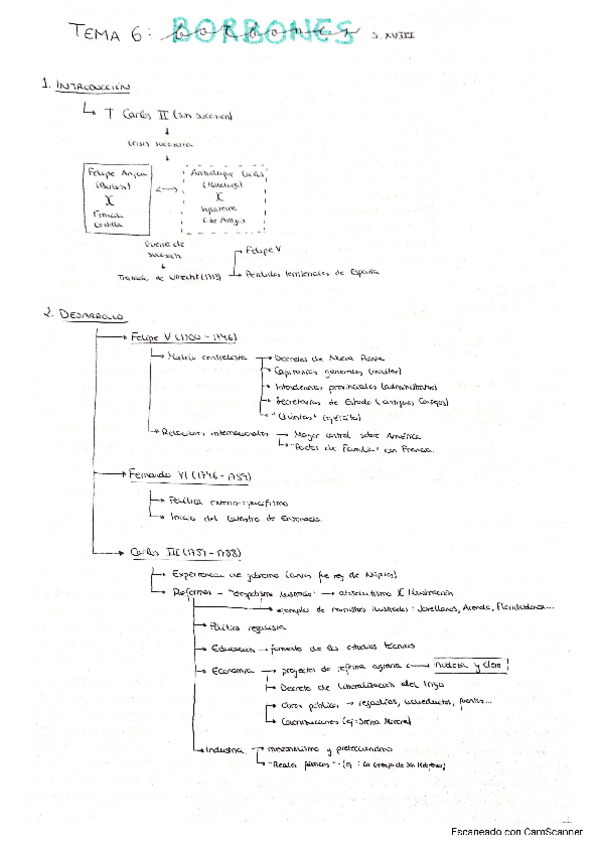 TEMA 6: BORBONES S. XVIII
1. INTRODUCCIÓN
† Carlos II (sin sucesión)
Crisis sucesoria
Felipe Anjou (Borbón) X Francia Castilla
Archiduque Carlos (Habsburgo) X Inglaterra C. de Aragón
Guerra de sucesión
Tratado de Utrecht (1713)
Felipe V
Perdidas territoriales de España
2. DESARROLLO
Felipe V (1700 - 1746)
Modelo centralista
Decretos de Nueva Planta
Capitanías generales (militar)
Intendencias provinciales (administrativo)
Secretarías de Estado (antiguos Consejos)
"Quintas" (ejército)
Relaciones internacionales
Mayor control sobre América
"Pactos de Familia" con Francia.
Fernando VI (1746 - 1759)
Política exterior: pacifismo
Inicio del Catastro de Ensenada
Carlos III (1759 - 1788)
Experiencia de gobierno (antes fue rey de Nápoles)
Reformas - "despotismo ilustrado" → absolutismo X Ilustración
ejemplos de ministros ilustrados: Jovellanos, Aranda, Floridablanca...
Política regalista
Educación → fomento de los estudios técnicos
Economía → proyectos de reforma agraria ← nobleza y clero
Decreto de liberalización del trigo
Obras públicas → regadíos, acueductos, puentes...
Colonizaciones (ej: Sierra Morena)
Industria → mercantilismo y proteccionismo
"Reales fábricas" - (ej: La Granja de San Ildefonso)
Escaneado con CamScanner